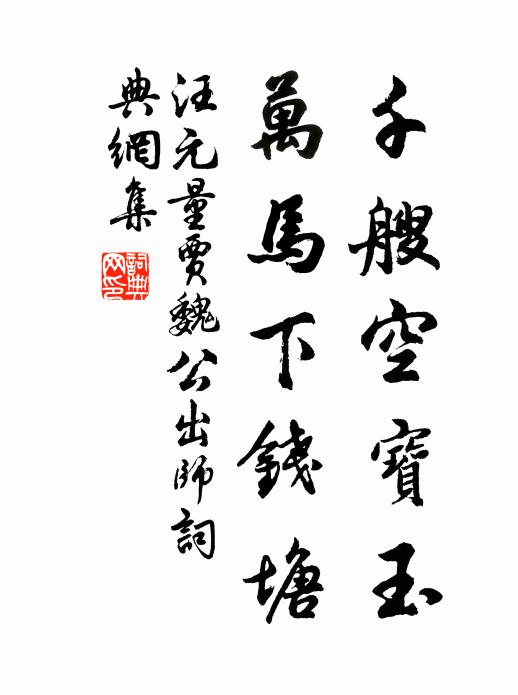 千艘空寶玉
萬馬下錢塘
汪元量賈魏公出師詞
典網集
詞典网印